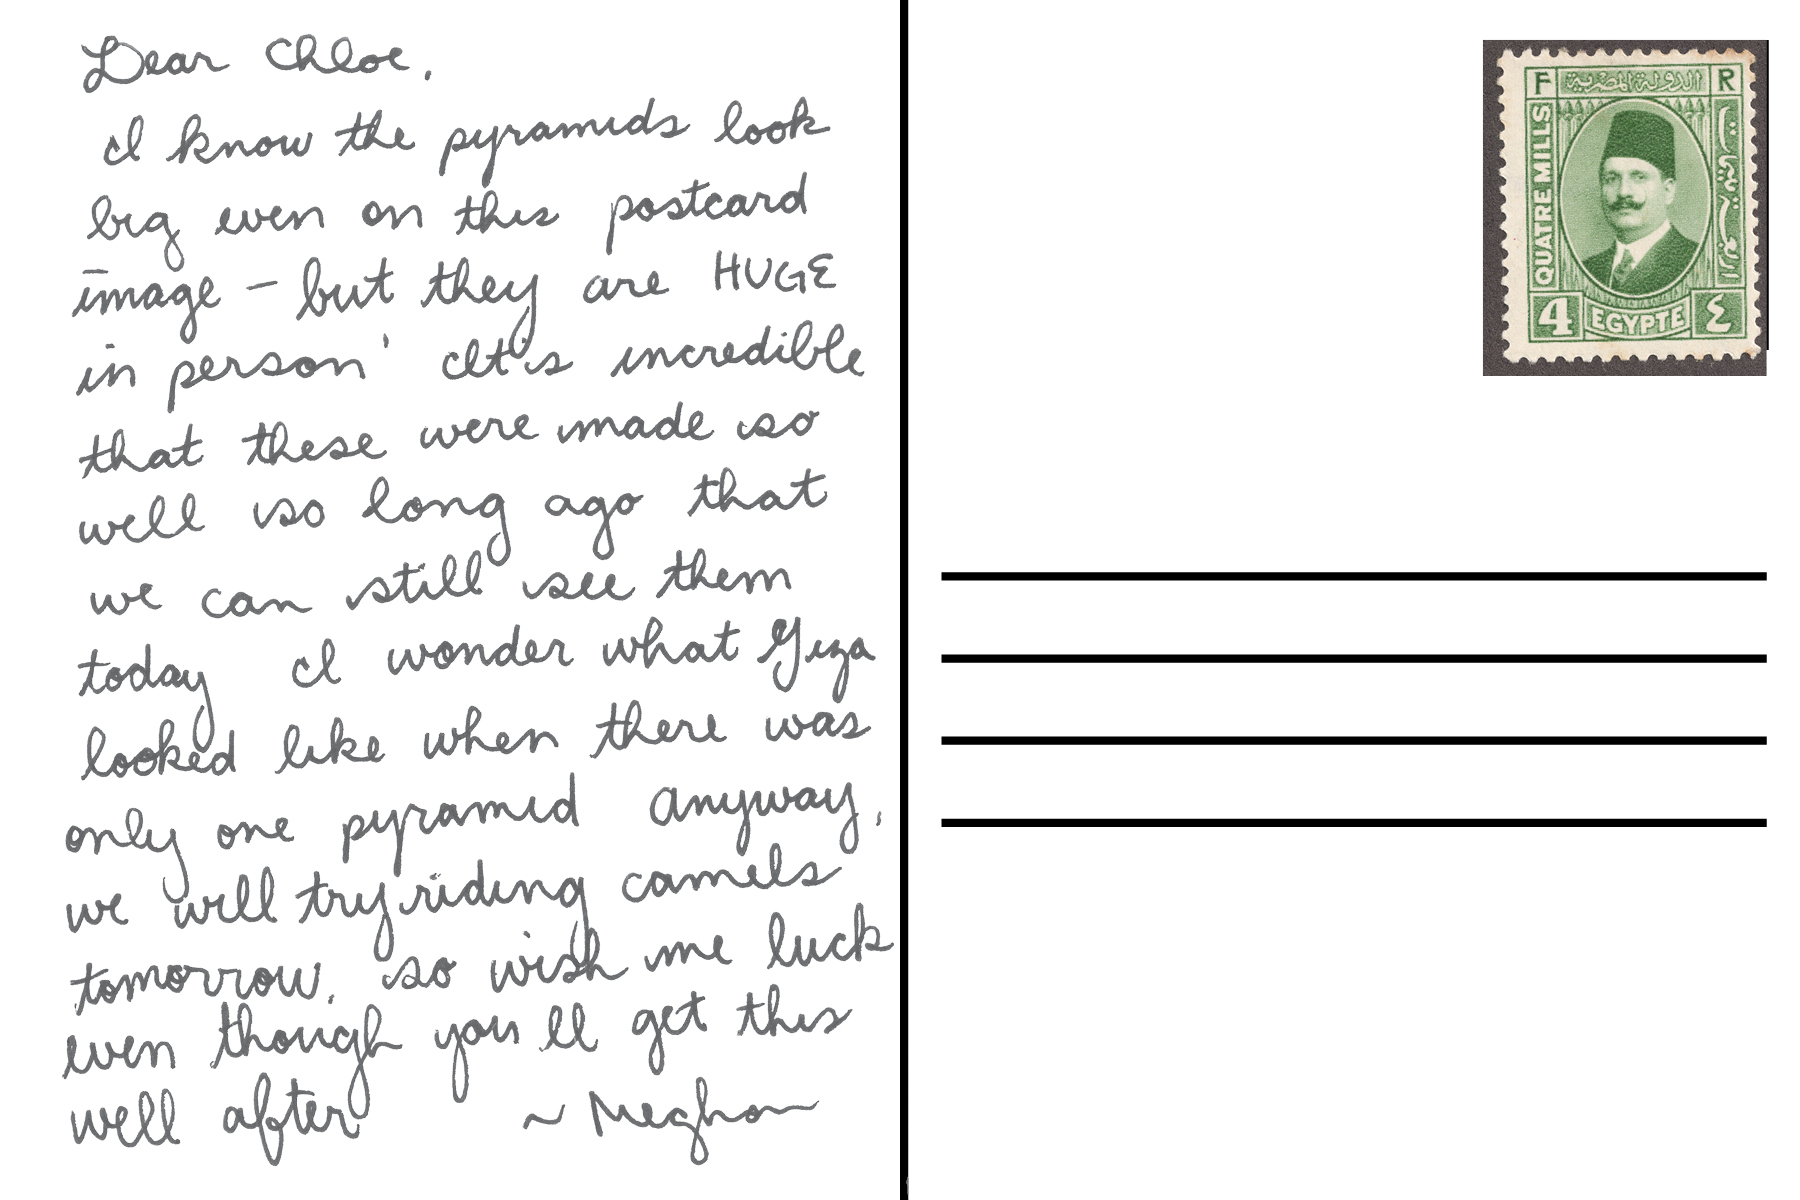 Dear Chloe,
I know the pyramids look
big even on this postcard
image - but they are HUGE
in person' It's incredible
that these were made so
well so long ago that
we can still see them
today I wonder what Giza
looked like when there was
only one pyramid Anyway,
we will try riding camels
tomorrow, so wish me luck
even though you ll get this
well after ~ Meghan
F الدولة المصرية R
QUATRE MILLS
4 EGYPTE ٤